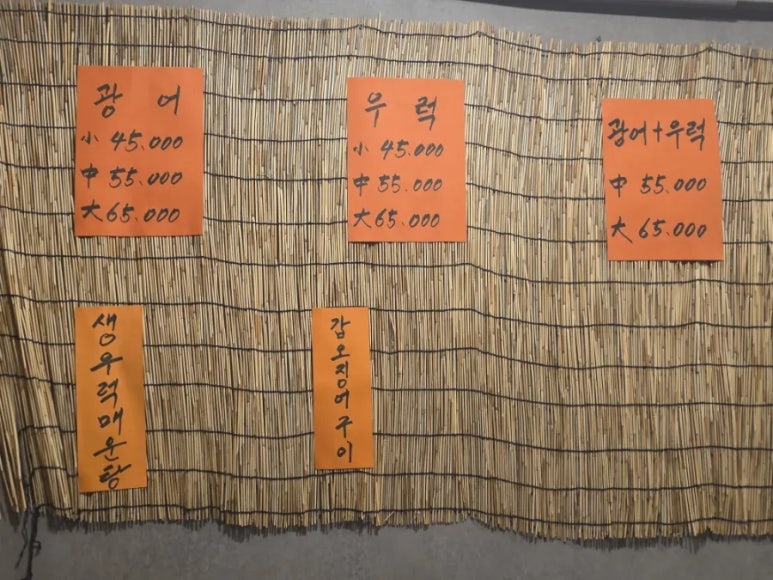 광어
小 45.000
中 55.000
大 65.000
우럭
小 45.000
中 55.000
大 65.000
광어+우럭
中 55.000
大 65.000
생우럭매운탕
갑오징어구이